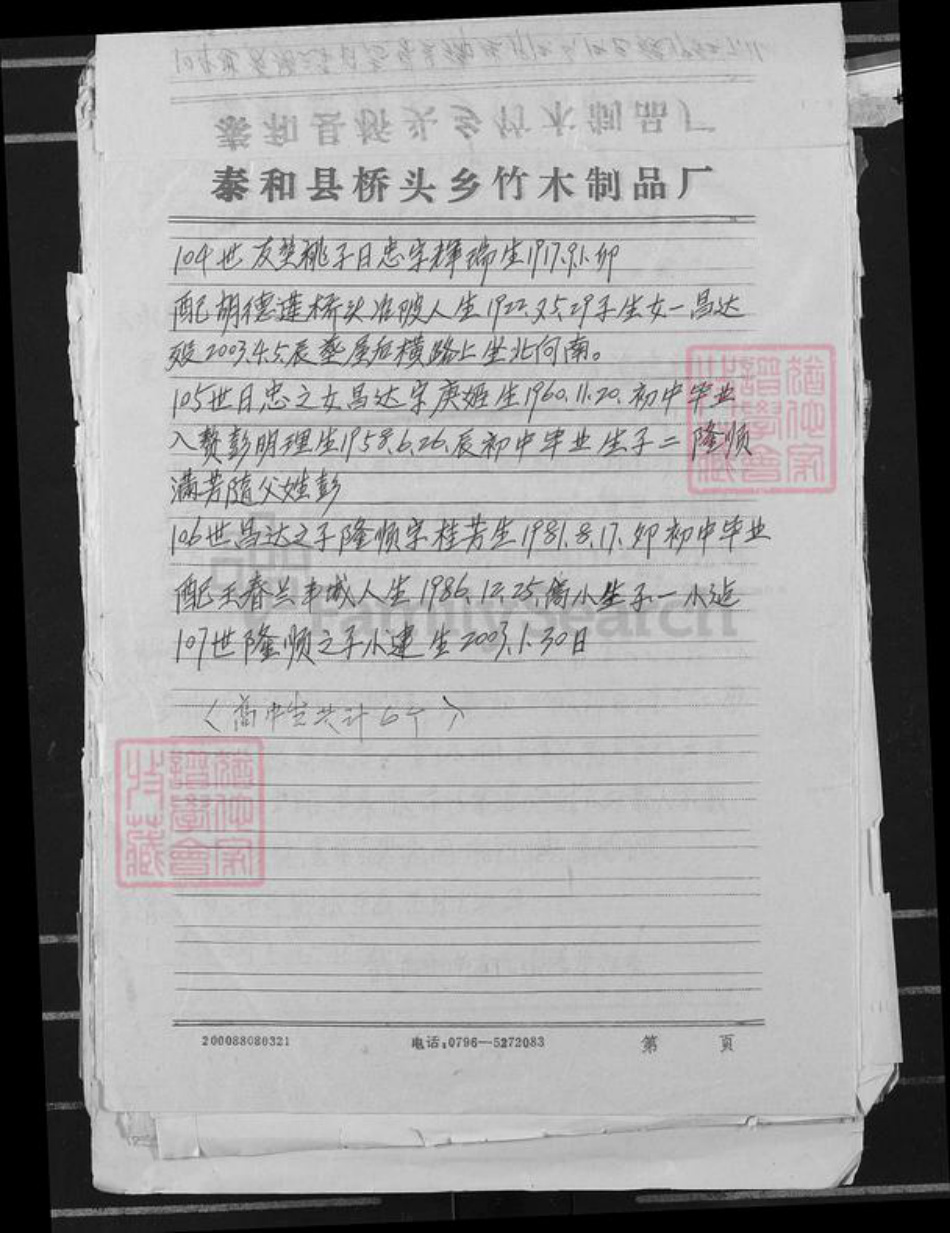 泰和县桥头乡竹木制品厂
104世友 桃子日忠字辉瑞生1917.9.1.卯
配胡德莲桥头 陂人生1922.又5.29子生女一昌达
殁2003.4.5.辰葬屋后横路上坐北向南。
105世日忠之女昌达字庚姬生1960.11.20.初中毕业
入赘彭明理生1958.6.26.辰初中毕业生子二隆顺
满芳随父姓彭
106世昌达之子隆顺字桂芳生1981.8.17.卯初中毕业
配王春兰丰城人生1986.12.25.高小生子一小
107世隆顺之子小建生2003.1.30日
〈高中生共计6个〉
FamilySearch
200088080321 电话:0796—5272083 第 页